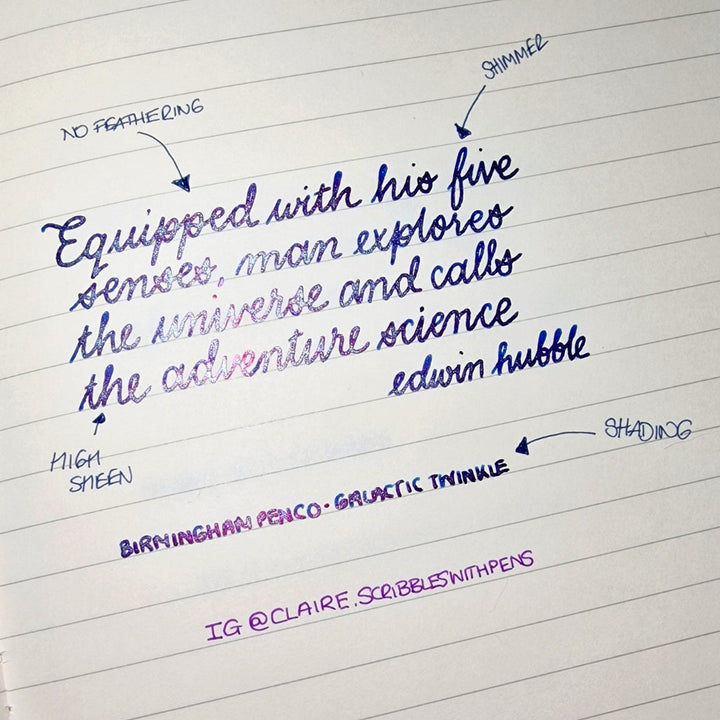 SHIMMER
NO FEATHERING
Equipped with his five
senses, man explores
the universe and calls
the adventure science
edwin hubble
HIGH
SHEEN
SHADING
BIRMINGHAM PEN CO · GALACTIC TWINKLE
IG @CLAIRE.SCRIBBLESWITHPENS